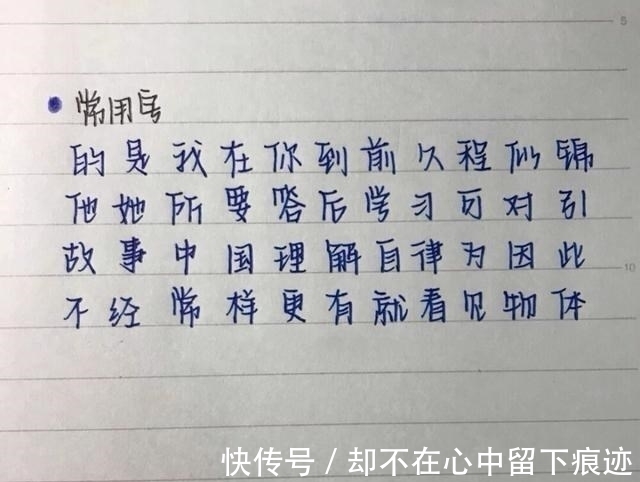 5
常用字
的是我在你到前久程似锦
他她所要答后学习可对引
故事中国理解自律为因此
10
不经常样更有就看见物体
快传号/却不在心中留下痕迹